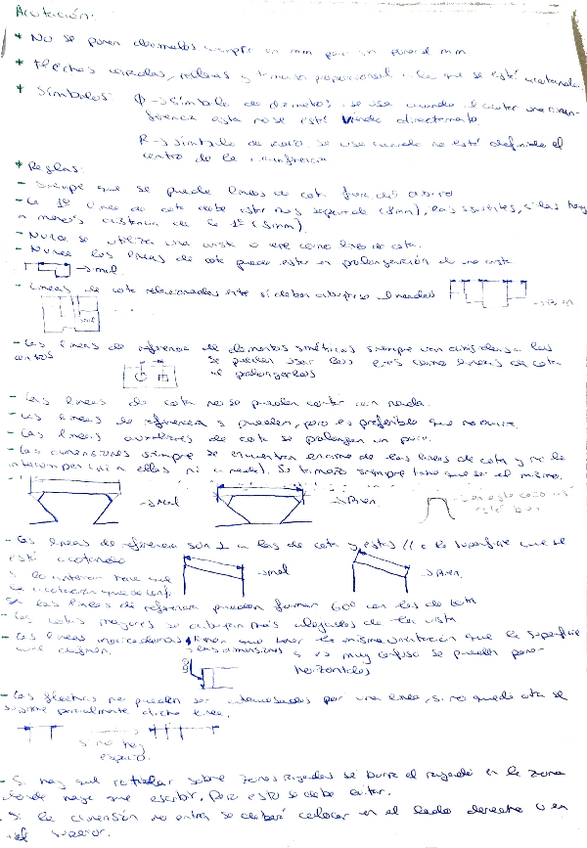 Acotación:
* No se ponen decimales siempre en mm para sin poner el mm
* Flechas rellenas y tamaño proporcional a lo que se está acotando.
* Símbolos: Ø → Símbolo de diámetro, se usa cuando al acotar una circun-
ferencia esta no se está viendo directamente.
R → símbolo de radio, se usa cuando no está definido el
centro de la circunferencia
* Reglas:
- Siempre que se pueda líneas de cota fuera del
- La 1ª línea de cota debe estar más separada (8mm), las siguientes, si las hay
a menos distancia de la 1ª (5mm).
- Nunca se utiliza una arista o eje como línea de cota.
- Nunca las líneas de cota pueden estar en prolongación de una arista
→ mal
- Líneas de cota relacionadas entre sí deben
→ Bien
mal
- Las líneas de referencia de elementos simétricos siempre van a las
centros
se pueden usar los ejes como líneas de cota
al prolongarlos
- Las líneas de cota no se pueden cortar con nada.
- Las líneas de referencia sí pueden, pero es preferible que no ocurra.
- Las líneas auxiliares de cota se prolongan un poco.
- Las dimensiones siempre se encuentran encima de las líneas de cota y no la
interrumpen (ni a ellas ni a nada). Su tamaño siempre tiene que ser el mismo.
→ Mal
→ Bien
en este caso
está bien
- Las líneas de referencia son ⊥ a las de cota y estas // a la superficie que se
está acotando
→ mal
→ Bien
si lo anterior hace que
la acotación quede conf.
Si las líneas de referencia pueden formar 60º con las de cota
- Las cotas mayores se dibujan más alejadas de la vista
- Las líneas indicadoras tienen que tener la misma orientación que la superficie
→ las dimensiones si es muy confuso se pueden poner
horizontales
- Las flechas no pueden ser interceptadas por una línea, si no queda otra se
suprime parcialmente dicha línea.
Si no hay
espacio.
- Si hay que rotular sobre zonas rayadas se borra el rayado en la zona
donde haya que escribir. Pero esto se debe evitar.
- Si la dimensión no entra se deberá colocar en el lado derecho o en
el superior.